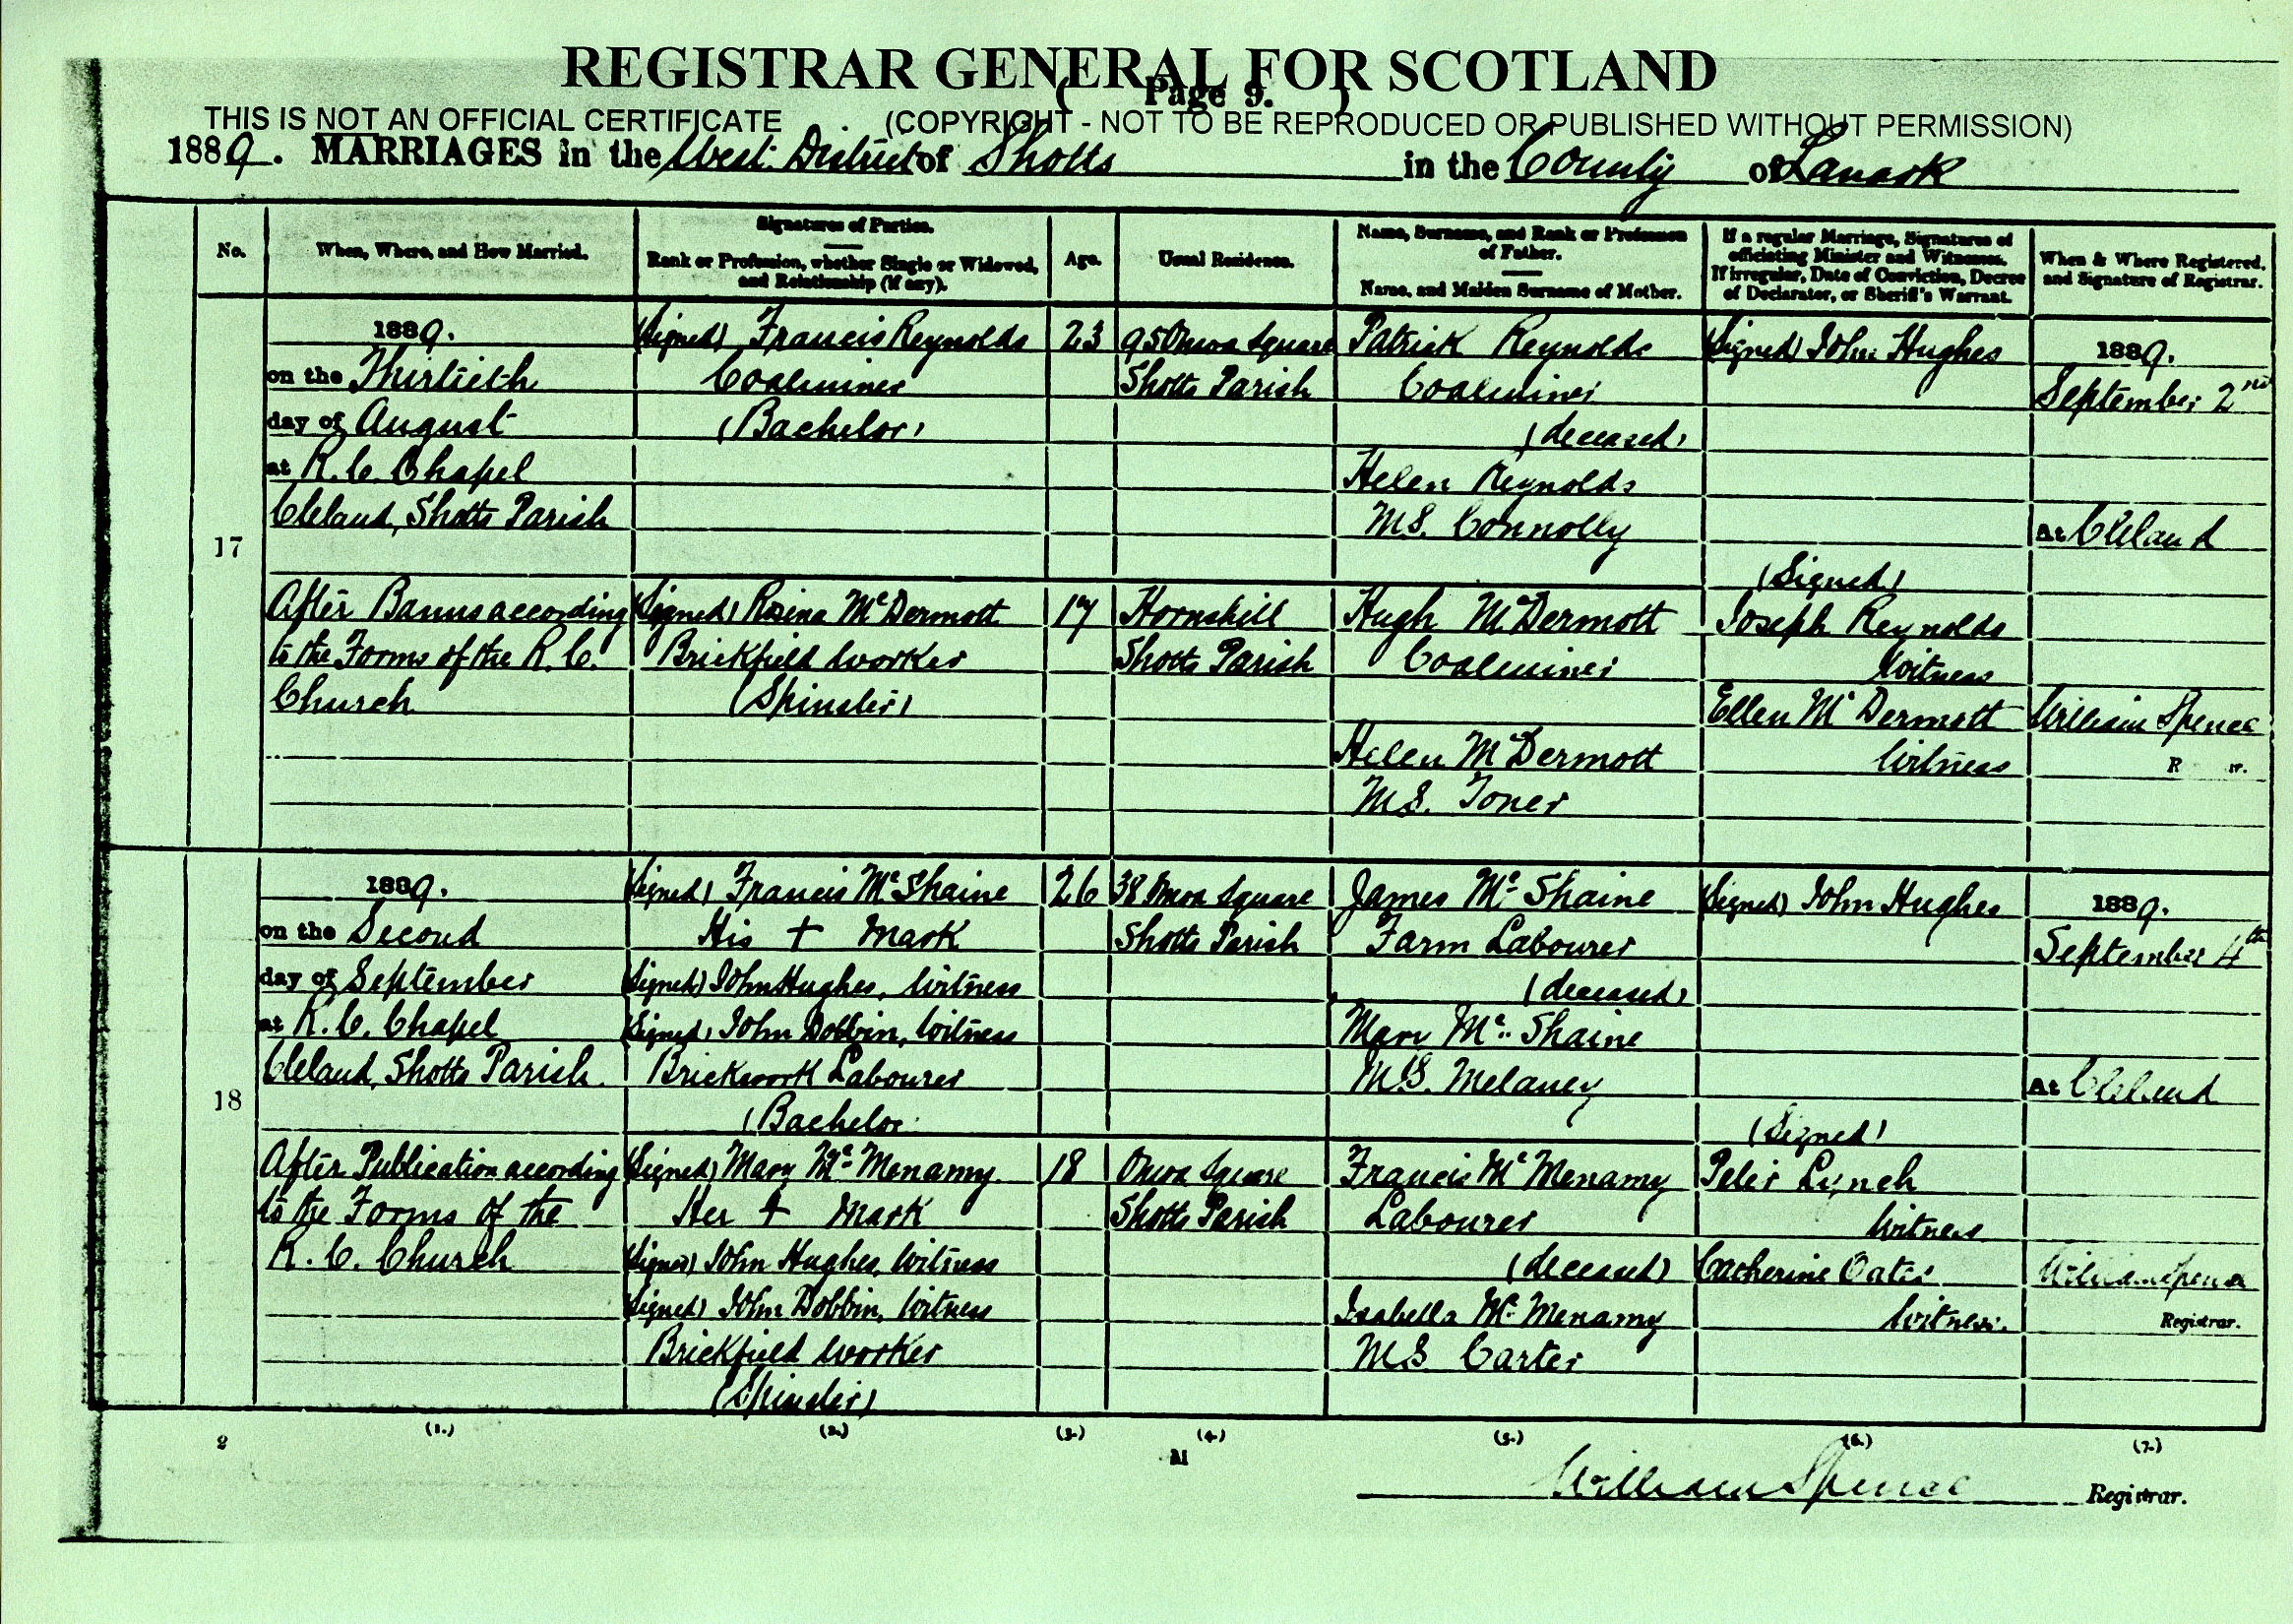 REGISTRAR GENERAL FOR SCOTLAND
( Page 9. )
THIS IS NOT AN OFFICIAL CERTIFICATE (COPYRIGHT - NOT TO BE REPRODUCED OR PUBLISHED WITHOUT PERMISSION)
1889. MARRIAGES in the West District of Shotts in the County of Lanark
No.
When, Where, and How Married.
Signatures of Parties.
Rank or Profession, whether Single or Widowed,
and Relationship (if any).
Age.
Usual Residence.
Name, Surname, and Rank or Profession
of Father.
Name, and Maiden Surname of Mother.
If a regular Marriage, Signatures of
officiating Minister and Witnesses.
If irregular, Date of Conviction, Decree
of Declarator, or Sheriff's Warrant.
When & Where Registered,
and Signature of Registrar.
17
1889.
on the Thirtieth
day of August
at R. C. Chapel
Cleland, Shotts Parish
After Banns according
to the Forms of the R. C.
Church
(Signed) Francis Reynolds
Coalminer
(Bachelor)
(Signed) Rosina McDermott
Brickfield Worker
(Spinster)
23
17
95 Omoa Square
Shotts Parish
Hornshill
Shotts Parish
Patrick Reynolds
Coalminer
(deceased)
Helen Reynolds
M.S. Connolly
Hugh McDermott
Coalminer
Helen McDermott
M.S. Toner
(Signed) John Hughes
(Signed)
Joseph Reynolds
Witness
Ellen McDermott
Witness
1889.
September 2nd
At Cleland
William Spence
R r.
18
1889.
on the Second
day of September
at R. C. Chapel
Cleland, Shotts Parish.
After Publication according
to the Forms of the
R. C. Church
(Signed) Francis McShaine
His + Mark
(Signed) John Hughes, Witness
(Signed) John Dobbin, Witness
Brickwork Labourer
(Bachelor
(Signed) Mary McMenamy.
Her + Mark
(Signed) John Hughes, Witness
(Signed) John Dobbin, Witness
Brickfield Worker
(Spinster)
26
18
38 Omoa Square
Shotts Parish
Omoa Square
Shotts Parish
James McShaine
Farm Labourer
(deceased)
Mary McShaine
M.S. Melaney
Francis McMenamy
Labourer
(deceased)
Isabella McMenamy
M.S. Carter
(Signed) John Hughes
(Signed)
Peter Lynch
Witness
Catherine Oates
Witness.
1889.
September 4th
At Cleland
William Spence
Registrar.
2 (1.) (2.) (3.) (4.) (5.) (6.) (7.)
M
William Spence Registrar.